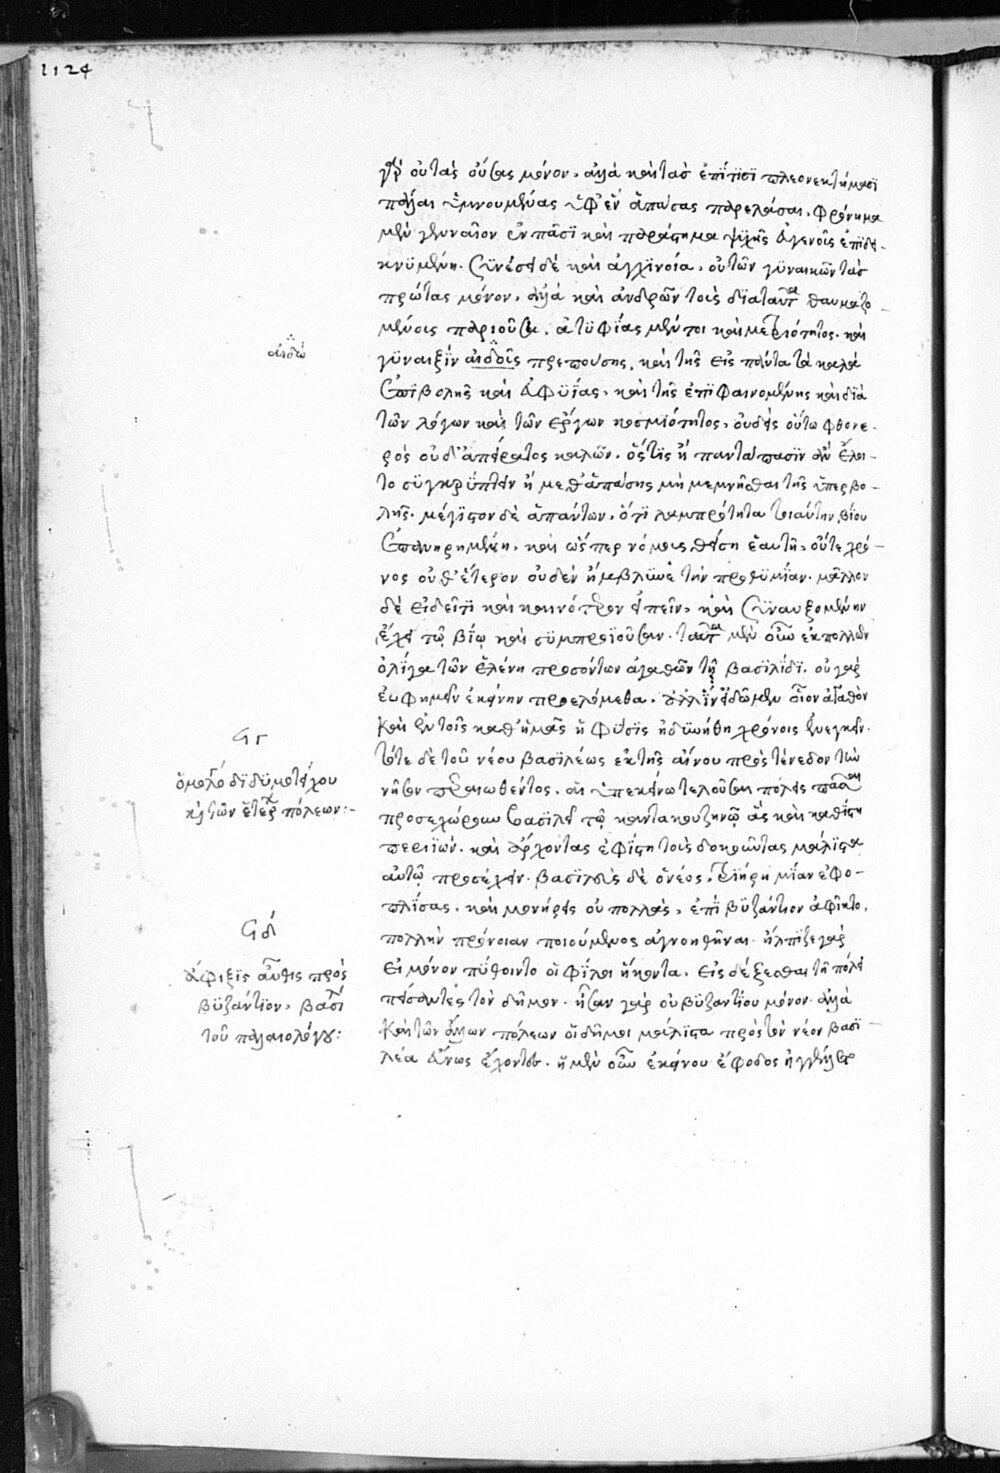 1124
γὰρ οὐ τὰς οὔσας μόνον, ἀλλὰ καὶ τὰς ἐπί τισι πλεονεκτήμασι
πάλαι ὑμνουμένας ὑφ' ἓν ἁπάσας παρελάσαι. φρόνημα
μὲν γενναῖον ἐν πᾶσι καὶ παράστημα ψυχῆς ἀγενοῦς ἐπιδε-
κνυμένη. σύνεσει δὲ καὶ ἀγχινοία, οὐ τῶν γυναικῶν τὰς
πρώτας μόνον, ἀλλὰ καὶ ἀνδρῶν τοὺς διὰ ταῦτα θαυμαζο-
μένους παριοῦσα, ἀτυφίας μέντοι καὶ μετριότητος, καὶ
γυναιξὶν αἰδοῦς πρεπούσης, καὶ τῆς εἰς πάντα τὰ καλὰ
ἐπιβολῆς καὶ εὐφυΐας, καὶ τῆς ἐπιφαινομένης καὶ διὰ
τῶν λόγων καὶ τῶν ἔργων κοσμιότητος, οὐδεὶς οὕτω φθονε-
ρὸς οὐδ' ἀπείρατος καλῶν, ὅστις ἢ παντάπασιν ἂν ἕλοι-
το συγκρύπτειν ἢ μεθ' ἁπάσης μὴ μεμνῆσθαι τῆς ὑπερβο-
λῆς. μέγιστον δὲ ἁπάντων, ὅτι λαμπρότητα τοιαύτην βίου
ἐπανῃρημένη, καὶ ὥσπερ νόμους θεῖσα ἑαυτῇ, οὔτε χρό-
νος οὔθ' ἕτερον οὐδὲν ἤμβλυνε τὴν προθυμίαν. μᾶλλον
δὲ εἰ δεῖ τι καὶ καινότερον εἰπεῖν, καὶ συναυξομένην
ἔχει τῷ βίῳ καὶ συμπροϊοῦσαν. ταῦτα μὲν οὖν ἐκ πολλῶν
ὀλίγα τῶν Ἑλένῃ προσόντων ἀγαθῶν τῇ βασιλίδι. οὐ γὰρ
εὐφημεῖν ἐκείνην προειλόμεθα, ἀλλ' ἵν' εἰδῶμεν οἷον ἀγαθὸν
καὶ ἐν τοῖς καθ' ἡμᾶς ἡ φύσις ἠδυνήθη χρόνοις ἐνεγκεῖν.
τότε δὲ τοῦ νέου βασιλέως ἐκ τῆς αἴνου πρὸς τένεδον τὴν
νῆσον περαιωθέντος, αἱ ὑπ' ἐκείνῳ τελοῦσαι πόλεις πᾶσαι
προσεχώρουν βασιλεῖ τῷ καντακουζηνῷ ἃς καὶ καθίστη
περιϊών. καὶ ἄρχοντας ἐφίστη τοὺς δοκοῦντας μάλιστα
αὐτῷ προσέχειν. βασιλεὺς δὲ ὁ νέος, τριήρη μίαν ἐφο-
πλίσας, καὶ μονήρεις οὐ πολλὰς, ἐπὶ βυζάντιον ἀφῖκτο,
πολλὴν πρόνοιαν ποιούμενος ἀγνοηθῆναι. ἤλπιζε γὰρ
εἰ μόνον πύθοιντο οἱ φίλοι ἥκοντα, εἰσδέξεσθαι τῇ πόλει
πείσαντες τὸν δῆμον. ἦσαν γὰρ οὐ βυζαντίου μόνον ἀλλὰ
καὶ τῶν ἄλλων πόλεων οἱ δῆμοι μάλιστα πρὸς τὸν νέον βασι-
λέα εὔνως ἔχοντες. ἡ μὲν οὖν ἐκείνου ἔφοδος ἠγγέλλετο
αἰδώ
γ
ὁμολο διδυμοτείχου
καὶ τῶν ἑτέρ πόλεων:-
δ
ἄφιξις αὖθις πρὸς
βυζάντιον, βασι
τοῦ παλαιολόγου: